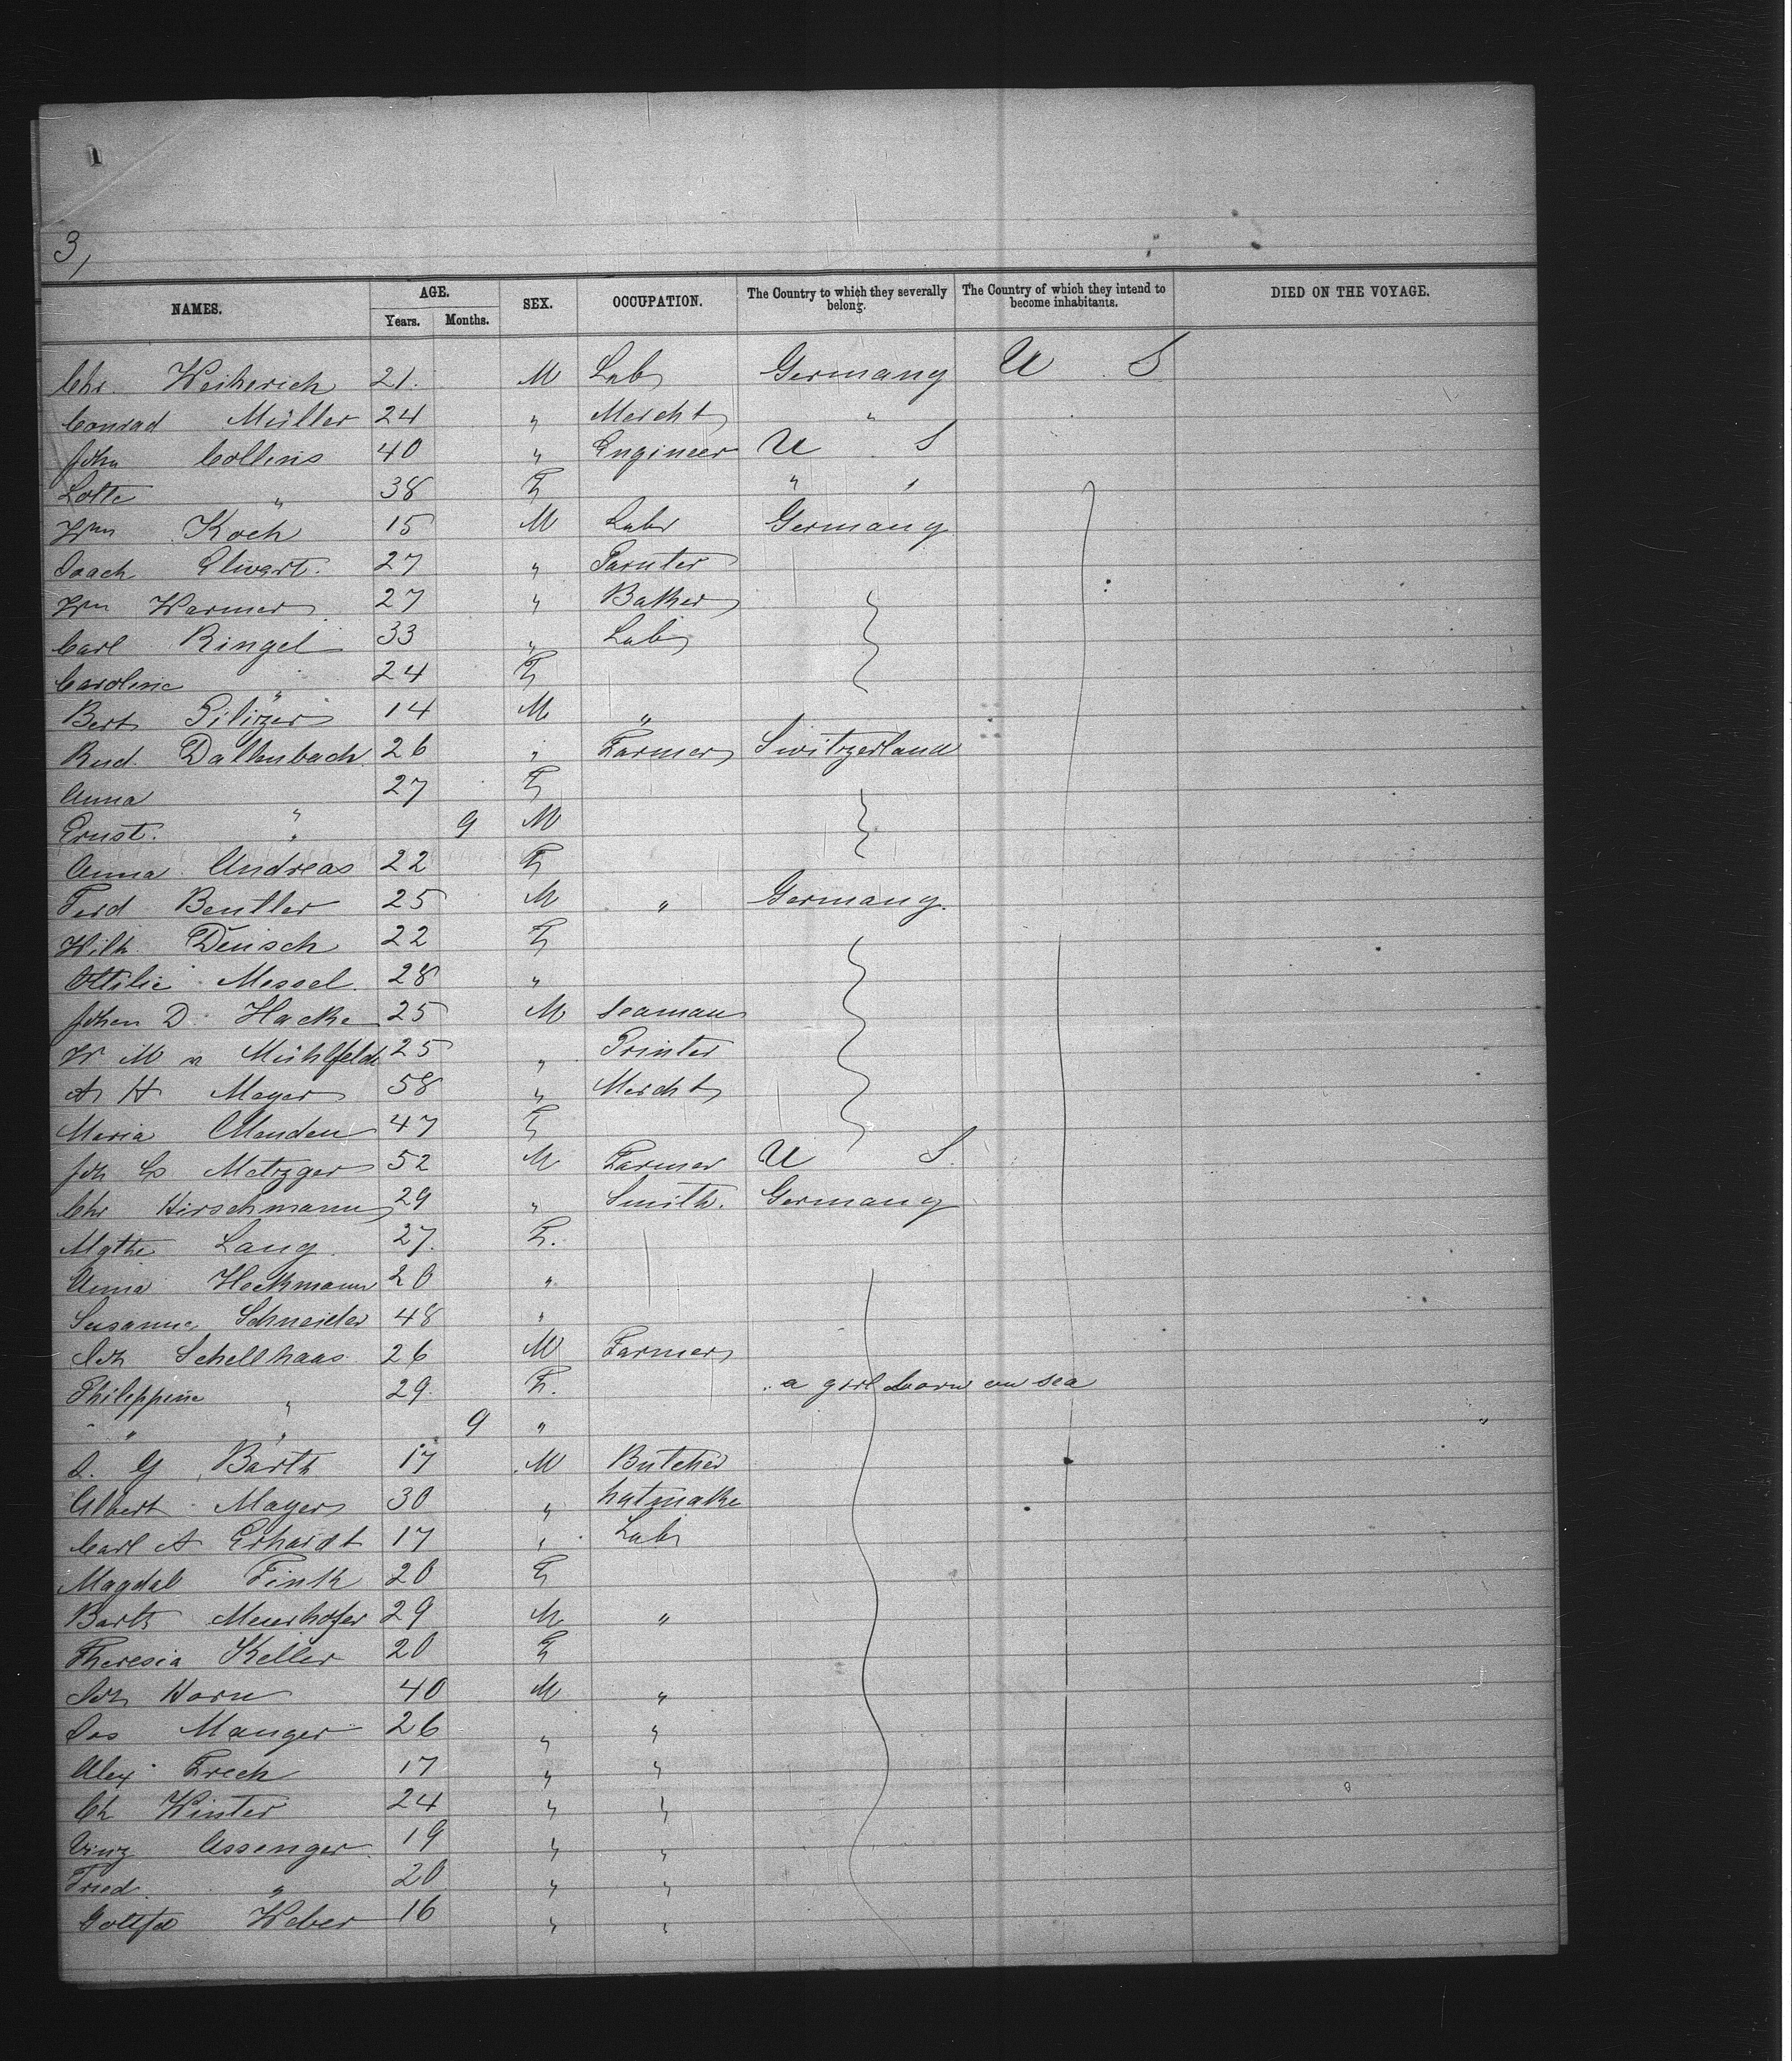 1
3,
NAMES. AGE. Years. Months. SEX. OCCUPATION. The Country to which they severally belong. The Country of which they intend to become inhabitants. DIED ON THE VOYAGE.
Chr. Weiherich 21. M Lab Germany U S
Conrad Müller 24 " Mercht "
John Collins 40 " Engineer U S
Lotte " 38 F " "
Wm Koch 15 M Labr Germany
Joach Elwert. 27 "
Wm Warmer 27 " Baker
Carl Ringel 33 " Lab
Caroline " 24 F
Bert 14 M "
Rud. Dallenbach 26 " Farmer Switzerland
Anna " 27 F
Ernst. " 9 M
Anna Andreas 22 F
Ferd Beutler 25 M " Germany.
Wilh Deusch 22 F
Ottilie Messel. 28 "
John D. Hacke 25 M Seaman
W M v Mühlfeld 25 " Printer
A H Meyer 58 " Mercht
Maria Menden 47 F
Joh Metzger 52 M Farmer U S.
Chr Hirschmann 29 " Smith. Germany
Mgthe Lang. 27. F.
Anna Heckmann 20 "
Susanne Schneider 48 "
Joh Schellhaas 26 M Farmer
Philippine " 29. F. a girl born on sea
" " 9 " "
J. G Barth 17 M Butcher
Albert Mayer 30 " hatmake
Carl A Erhardt 17 " Lab
Magdal Fink 20 F
Barth Meuerhofer 29 M "
Theresia Keller 20 F
Joh Horn 40 M "
Jos Manger 26 " "
Alex Frech 17 " "
Ch Winter 24 " "
Vinz Assenger. 19 " "
Fried. " 20 " "
Gottfd Weber 16 " "